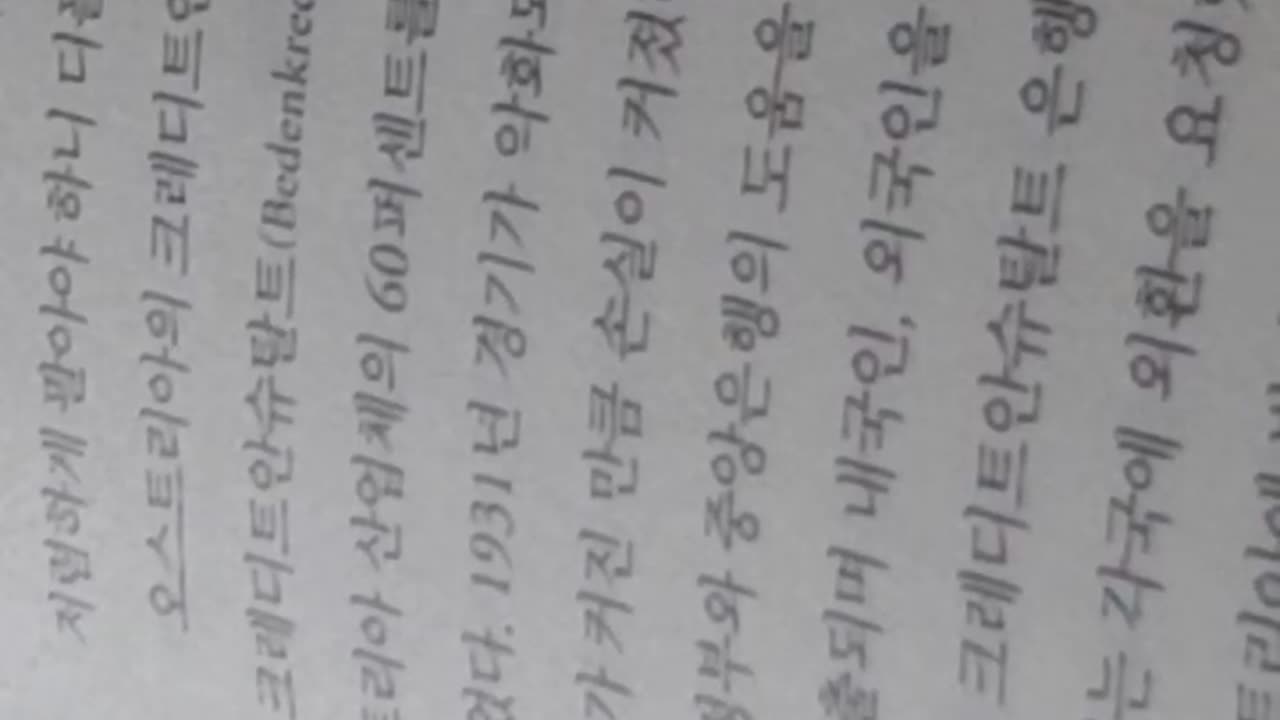 저렴하게 팔아야 하니 디플
오스트리아의 크레디트안
크레디트안슈탈트(Bodenkred
트리아 산업체의 60퍼센트를
었다. 1931년 경기가 악화되
가 커진 만큼 손실이 커졌
정부와 중앙은행의 도움을
출되며 내국인, 외국인을
크레디트안슈탈트 은행
는 각국에 외환을 요청
트리아에